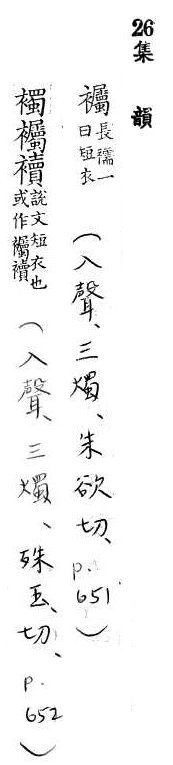 26集韻
襡長襦一曰短衣（入聲、三燭、朱欲切、p.651）
襡襡襩說文短衣也或作襡襩（入聲、三燭、殊玉切、p.652）